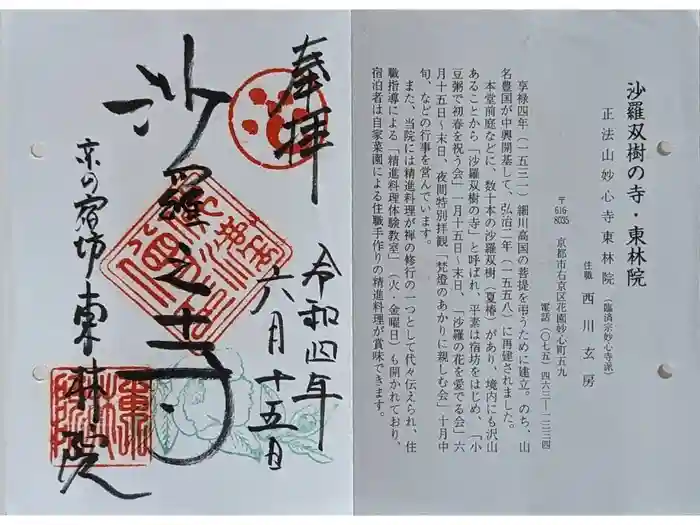 奉拝
沙羅之寺
令和四年
六月十五日
京の宿坊東林院
沙羅双樹の寺・東林院
正法山妙心寺東林院（臨済宗妙心寺派）
住職 西川玄房
〒616-8035 京都市右京区花園妙心町五九
電話（〇七五）四六三―一三三四
享禄四年（一五三一）細川高国の菩提を弔うために建立。のち、山
名豊国が中興開基して、弘治二年（一五五八）に再建されました。
本堂前庭などに、数十本の沙羅双樹（夏椿）があり、境内にも沢山
あることから「沙羅双樹の寺」と呼ばれ、平素は宿坊をはじめ、「小
豆粥で初春を祝う会」一月十五日～末日、「沙羅の花を愛でる会」六
月十五日～末日、夜間特別拝観「梵燈のあかりに親しむ会」十月中
旬、などの行事を営んでいます。
また、当院には精進料理が禅の修行の一つとして代々伝えられ、住
職指導による「精進料理体験教室」（火・金曜日）も開かれており、
宿泊者は自家菜園による住職手作りの精進料理が賞味できます。